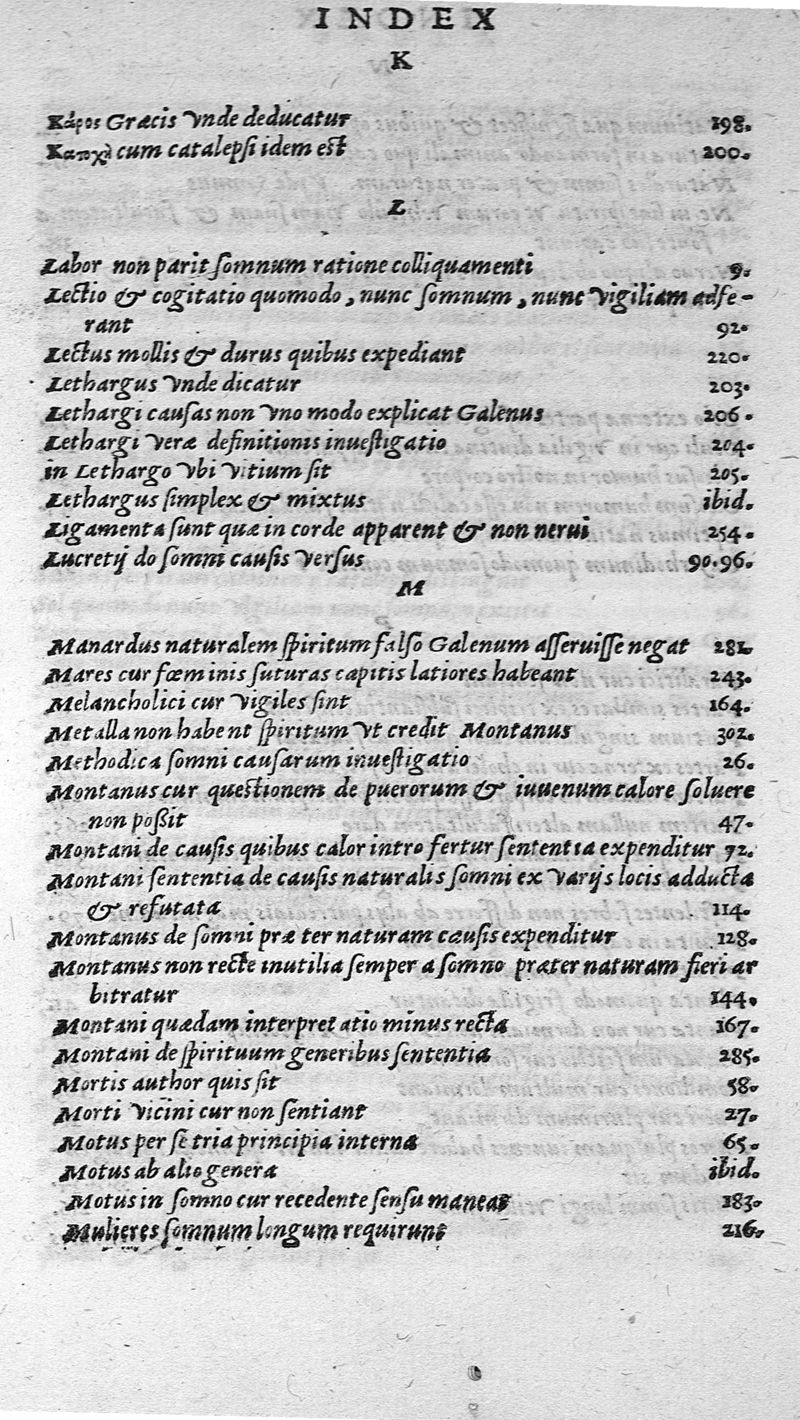 INDEX
K
Κάρος Græcis vnde deducatur 198.
Κατοχὴ cum catalepsi idem est 200.
L
Labor non parit somnum ratione colliquamenti 9.
Lectio & cogitatio quomodo, nunc somnum, nunc vigiliam adfe-
rant 92.
Lectus mollis & durus quibus expediant 220.
Lethargus vnde dicatur 203.
Lethargi causas non vno modo explicat Galenus 206.
Lethargi veræ definitionis inuestigatio 204.
in Lethargo vbi vitium sit 205.
Lethargus simplex & mixtus ibid.
Ligamenta sunt quæ in corde apparent & non nerui 254.
Lucretij do somni causis versus 90.96.
M
Manardus naturalem spiritum falso Galenum asseruisse negat 281.
Mares cur fœminis suturas capitis latiores habeant 243.
Melancholici cur vigiles sint 164.
Metalla non habent spiritum vt credit Montanus 302.
Methodica somni causarum inuestigatio 26.
Montanus cur questionem de puerorum & iuuenum calore soluere
non poßit 47.
Montani de causis quibus calor intro fertur sententia expenditur 72.
Montani sententia de causis naturalis somni ex varijs locis adducta
& refutata 114.
Montanus de somni præter naturam causis expenditur 128.
Montanus non recte inutilia semper a somno præter naturam fieri ar
bitratur 144.
Montani quædam interpretatio minus recta 167.
Montani de spirituum generibus sententia 285.
Mortis author quis sit 58.
Morti vicini cur non sentiant 27.
Motus per se tria principia interna 65.
Motus ab alio genera ibid.
Motus in somno cur recedente sensu maneat 183.
Mulieres somnum longum requirunt 216.